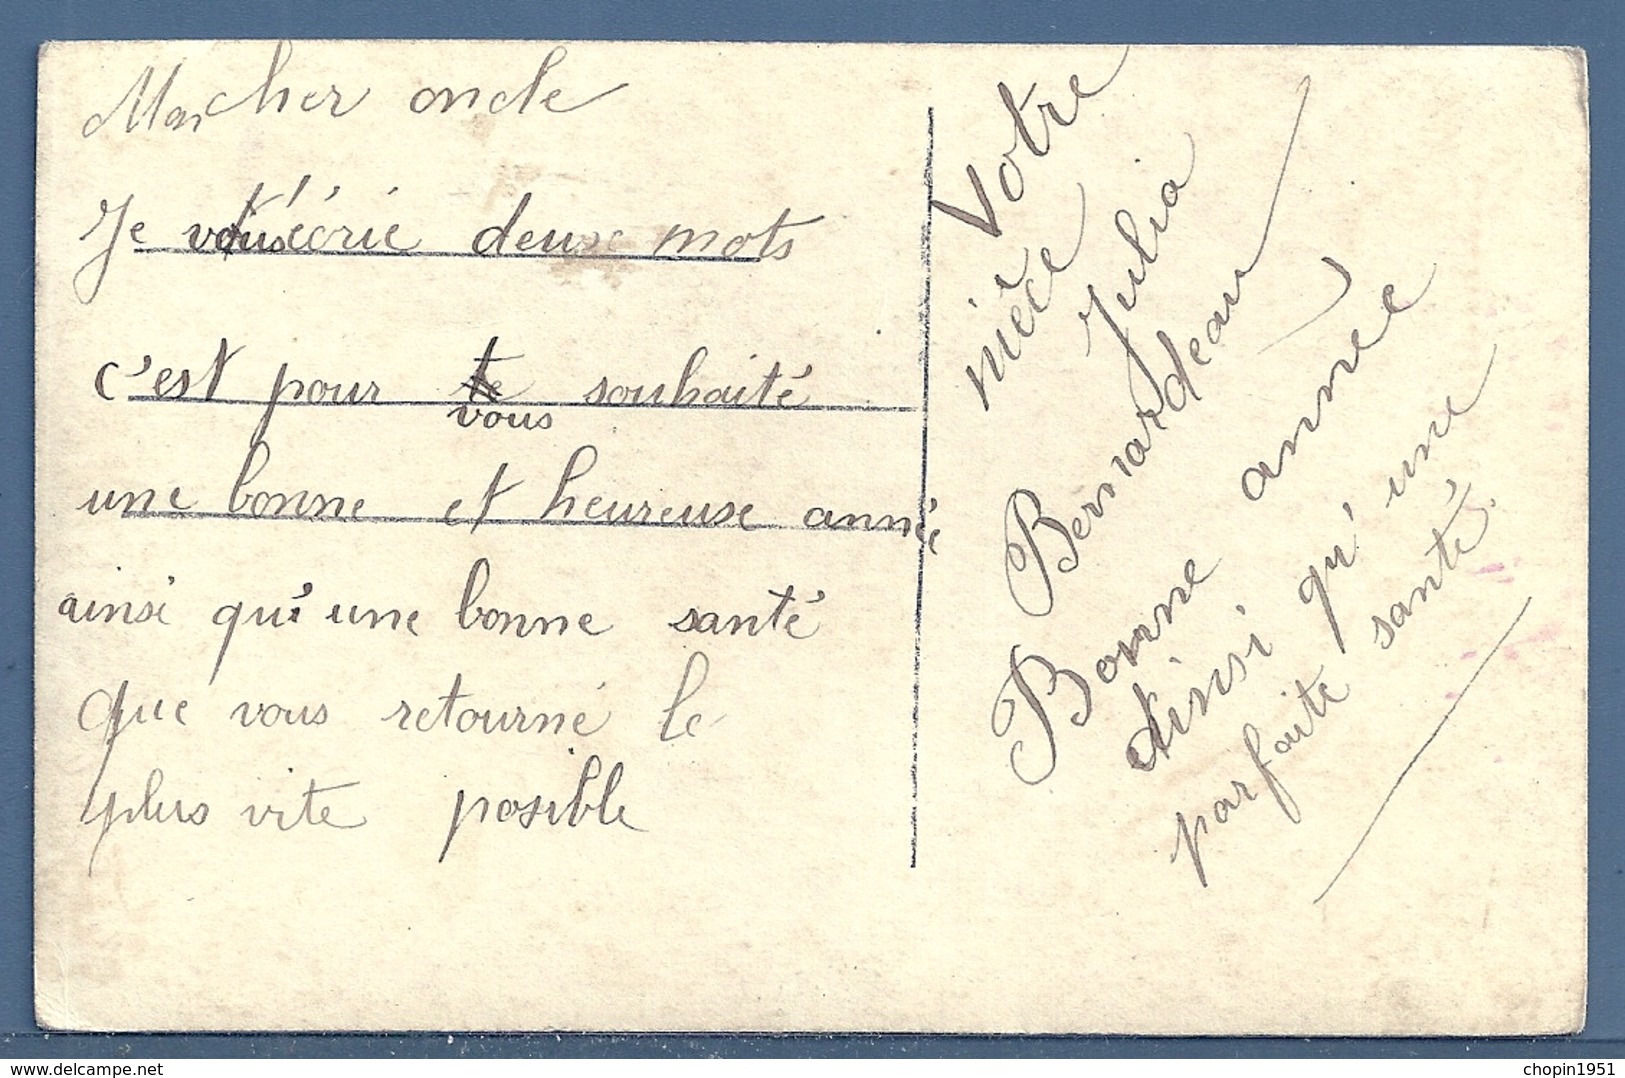 Mon cher oncle
Je vous écrie deux mots
c'est pour te souhaité
vous
une bonne et heureuse année
ainsi qu'une bonne santé
que vous retourné le
plus vite posible
Votre
nièce
Julia
Bernardeau
Bonne année
ainsi qu'une
parfaite santé.
chopin1951